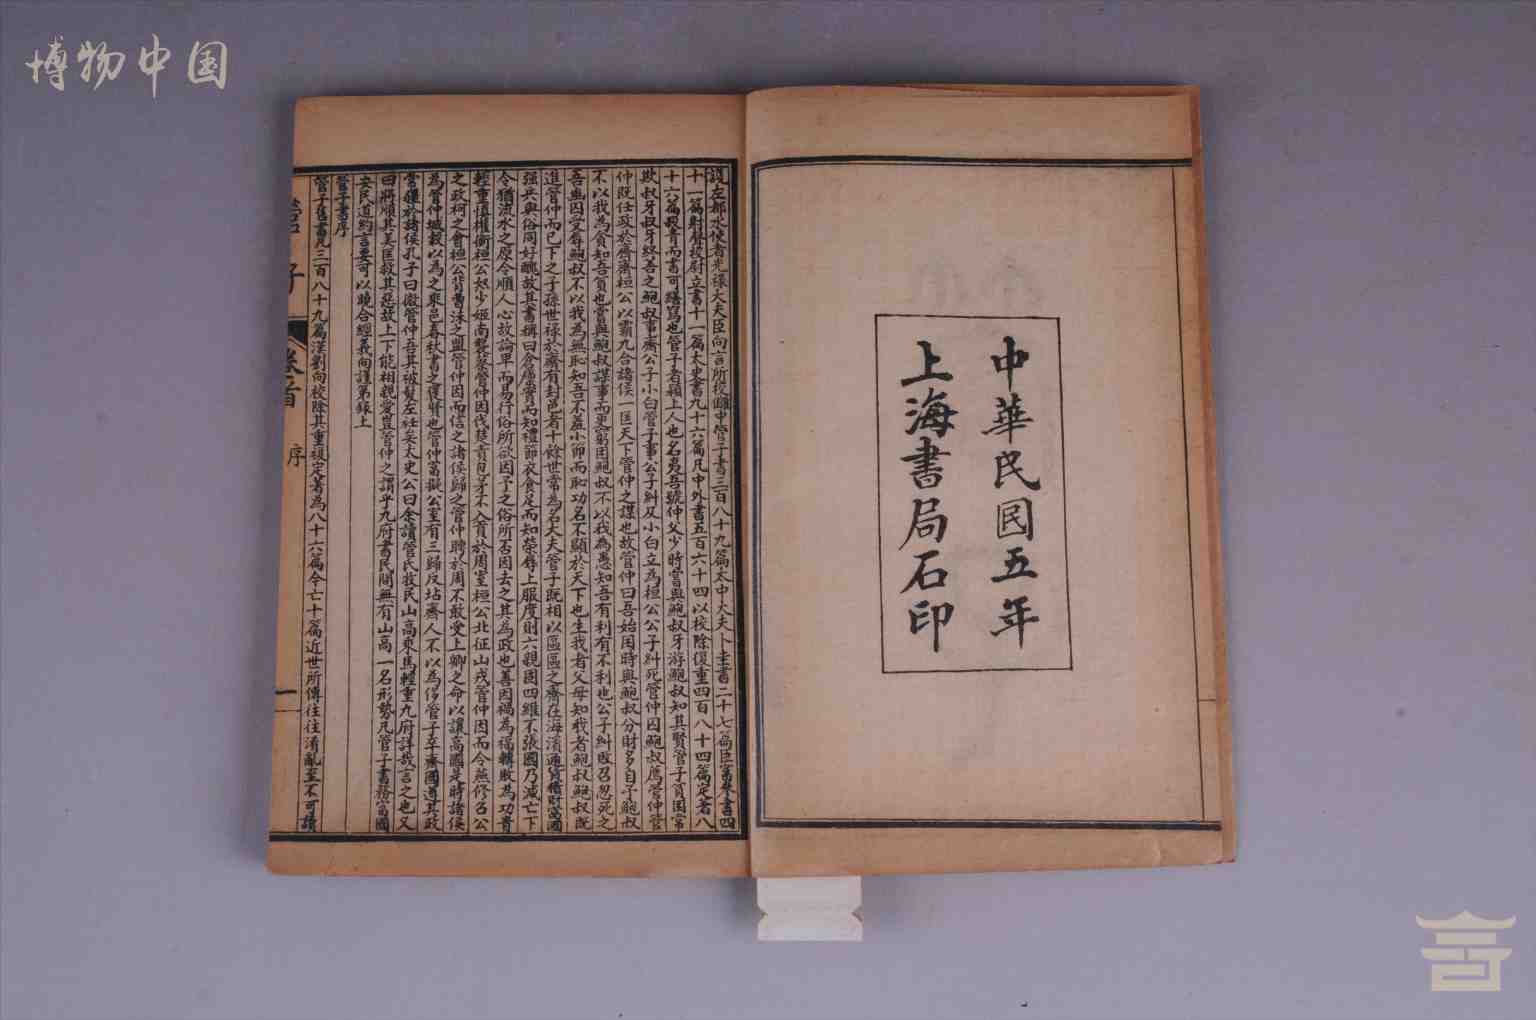 博物中国
中華民國五年
上海書局石印
護左都水使者光祿大夫臣向言所校讎中管子書三百八十九篇太中大夫卜圭書二十七篇臣富參書四
十一篇射聲校尉立書十一篇太史書九十六篇凡中外書五百六十四以校除復重四百八十四篇定著八
十六篇殺青而書可繕寫也管子者潁上人也名夷吾號仲父少時嘗與鮑叔牙游鮑叔知其賢管子貧困常
欺叔牙叔牙終善之鮑叔事齊公子小白管子事公子糾及小白立為桓公公子糾死管仲囚鮑叔薦管仲管
仲既任政於齊齊桓公以霸九合諸侯一匡天下管仲之謀也故管仲曰吾始困時與鮑叔分財多自予鮑叔
不以我為貪知吾貧也嘗與鮑叔謀事而更窮困鮑叔不以我為愚知吾有利有不利也公子糾敗召忽死之
吾幽囚受辱鮑叔不以我為無恥知吾不羞小節而恥功名不顯於天下也生我者父母知我者鮑叔鮑叔既
進管仲而己下之子孫世祿於齊有封邑者十餘世常為名大夫管子既相以區區之齊在海濱通貨積財富國
強兵與俗同好醜故其書稱曰倉廩實而知禮節衣食足而知榮辱上服度則六親固四維不張國乃滅亡下
令猶流水之原令順人心故論卑而易行俗所欲因予之俗所否因去之其為政也善因禍為福轉敗為功貴
輕重慎權衡桓公怒少姬南襲蔡管仲因伐楚責包茅不入貢於周室桓公北征山戎管仲因而令燕修召公
之政柯之會桓公背曹沫之盟管仲因而信之諸侯歸之管仲聘於周不敢受上卿之命以讓高國是時諸侯
為管仲城穀以為之乘邑春秋書之褒賢也管仲富擬公室有三歸反坫齊人不以為侈管子卒齊國遵其政
常彊於諸侯孔子曰微管仲吾其被髮左衽矣太史公曰余讀管氏牧民山高乘馬輕重九府詳哉言之也又
曰將順其美匡救其惡故上下能相親愛豈管仲之謂乎九府書民間無有山高一名形勢凡管子書務富國
安民道約言要可以曉合經義向謹第錄上
管子書序
管子舊書凡三百八十九篇漢劉向校除其重複定著為八十六篇今亡十篇近世所傳往往淆亂至不可讀
管子 卷首 序 一